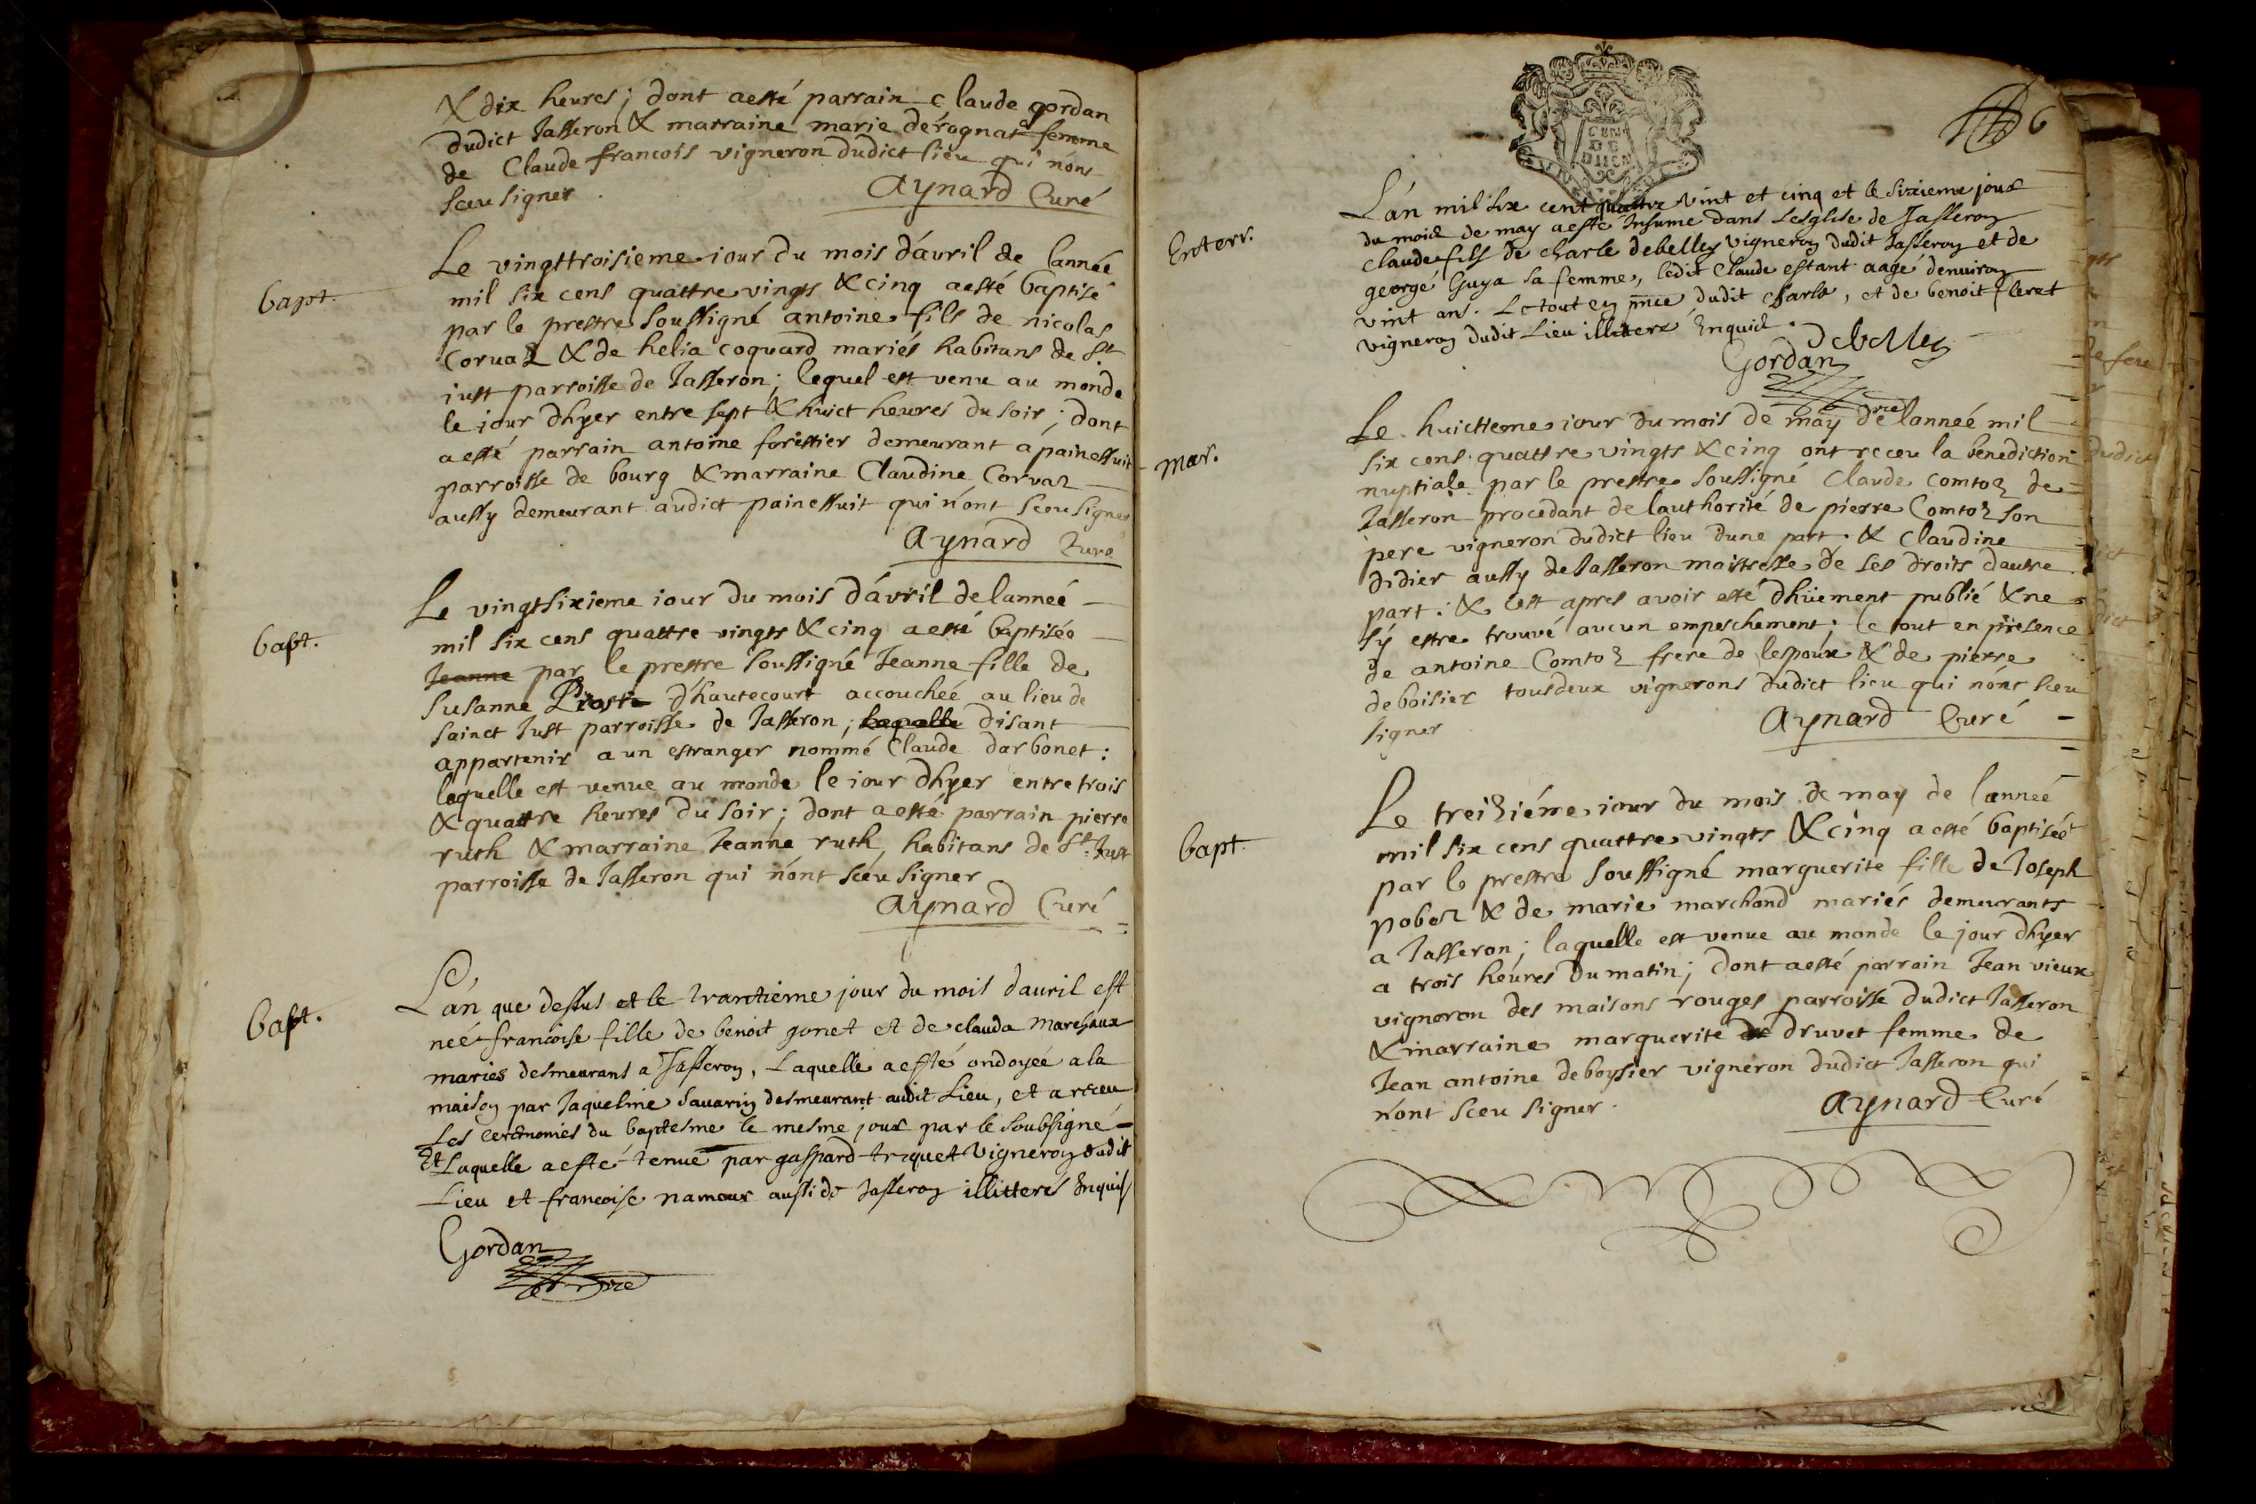 & dix heures; dont a esté parrain claude gordan
dudict Jasseron & marraine marie derognat femme
de Claude francois vigneron dudict lieu qui nons
sceu signer
Aynard Curé
bapt.
Le vingttroisieme iour du mois d'avril de lannée
mil six cens quattre vingts & cinq a esté baptisé
par le prestre soussigné antoine fils de nicolas
Corvaz & de helia coquard mariés habitans de St
iust parroisse de Jasseron; lequel est venu au monde
le iour dhyer entre sept & huict heures du soir; dont
a esté parrain antoine forestier demeurant a painessuit
parroisse de bourg & marraine Claudine Corvaz
aussy demeurant audict painessuit qui n'ont sceu signer
Aynard Curé
bapt.
Le vingtsixieme iour du mois d'avril de lanneé
mil six cens quattre vingts & cinq a esté baptisée
Jeanne par le prestre soussigné Jeanne fille de
Susanne d'hautecourt accoucheé au lieu de
sainct Just parroisse de Jasseron; laquelle disant
appartenir a un estranger nommé Claude darbonet:
laquelle est venue au monde le iour dhyer entre trois
& quattre heures du soir; dont a esté parrain pierre
ruth & marraine Jeanne ruth habitans de St Just
parroisse de Jasseron qui n'ont sceu signer
Aynard Curé
bapt.
L'an que dessus et le trantieme jour du mois dauril est
neé francoise fille de benoit gonet et de clauda Marchaux
mariés desmeurans a Jasseron, Laquelle a esté ondoyée a la
maison par Jaqueline Sauarin desmeurant audit Lieu, et a receu
Les ceremonies du baptesme le mesme jour par le soubsigné
Et Laquelle a esté tenue par gaspard triquet Vigneron dudit
Lieu et francoise namour aussi de Jasseron illitterés Enquis
Gordan
vre
6
GEN
DE
DIION
Enterr.
L'an mil six cent quattre vint et cinq et le sixieme jour
du mois de may a esté Inhumé dans Lesglise de Jasseron
Claude fils de charle debelley vigneron dudit Jasseron et de
george Guya sa femme, ledit Claude estant aagé denuiron
vint ans. Le tout en pnce dudit charle, et de benoit fleret
vigneron dudit Lieu illitteré Enquis.
Debelley
Gordan
vre
Mar.
Le huictieme iour du mois de may de lanneé mil
six cens quattre vingts & cinq ont receu la benediction
nuptiale par le prestre soussigné Claude Comtoz de
Jasseron procedant de lauthorité de pierre Comtoz son
pere vigneron dudict lieu dune part. & Claudine
Didier aussy de Jasseron maistresse de ses droits dautre
part: & cest apres avoir esté dhüement publié & ne
s'y estre trouvé aucun empeschement; le tout en presence
de antoine Comtoz frere de lespoux & de pierre
deboisier tousdeux vignerons dudict lieu qui nont sceu
signer
Aynard Curé
bapt.
Le treiziéme iour du mois de may de lanneé
mil six cens quattre vingts & cinq a esté baptiseé
par le prestre soussigné marguerite fille de Joseph
pobez & de marie marchand mariés demeurants
a Jasseron; laquelle est venue au monde le jour dhyer
a trois heures du matin; dont a esté parrain Jean vieux
vigneron des maisons rouges parroisse dudict Jasseron
& marraine marguerite de druvet femme de
Jean antoine deboysier vigneron dudict Jasseron qui
n'ont sceu signer.
Aynard Curé